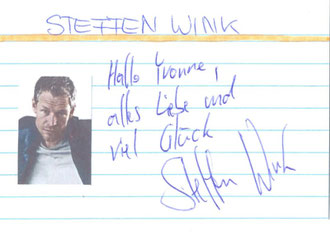 STEFFEN WINK
Hallo Yvonne,
alles Liebe und
viel Glück
Steffen Wink